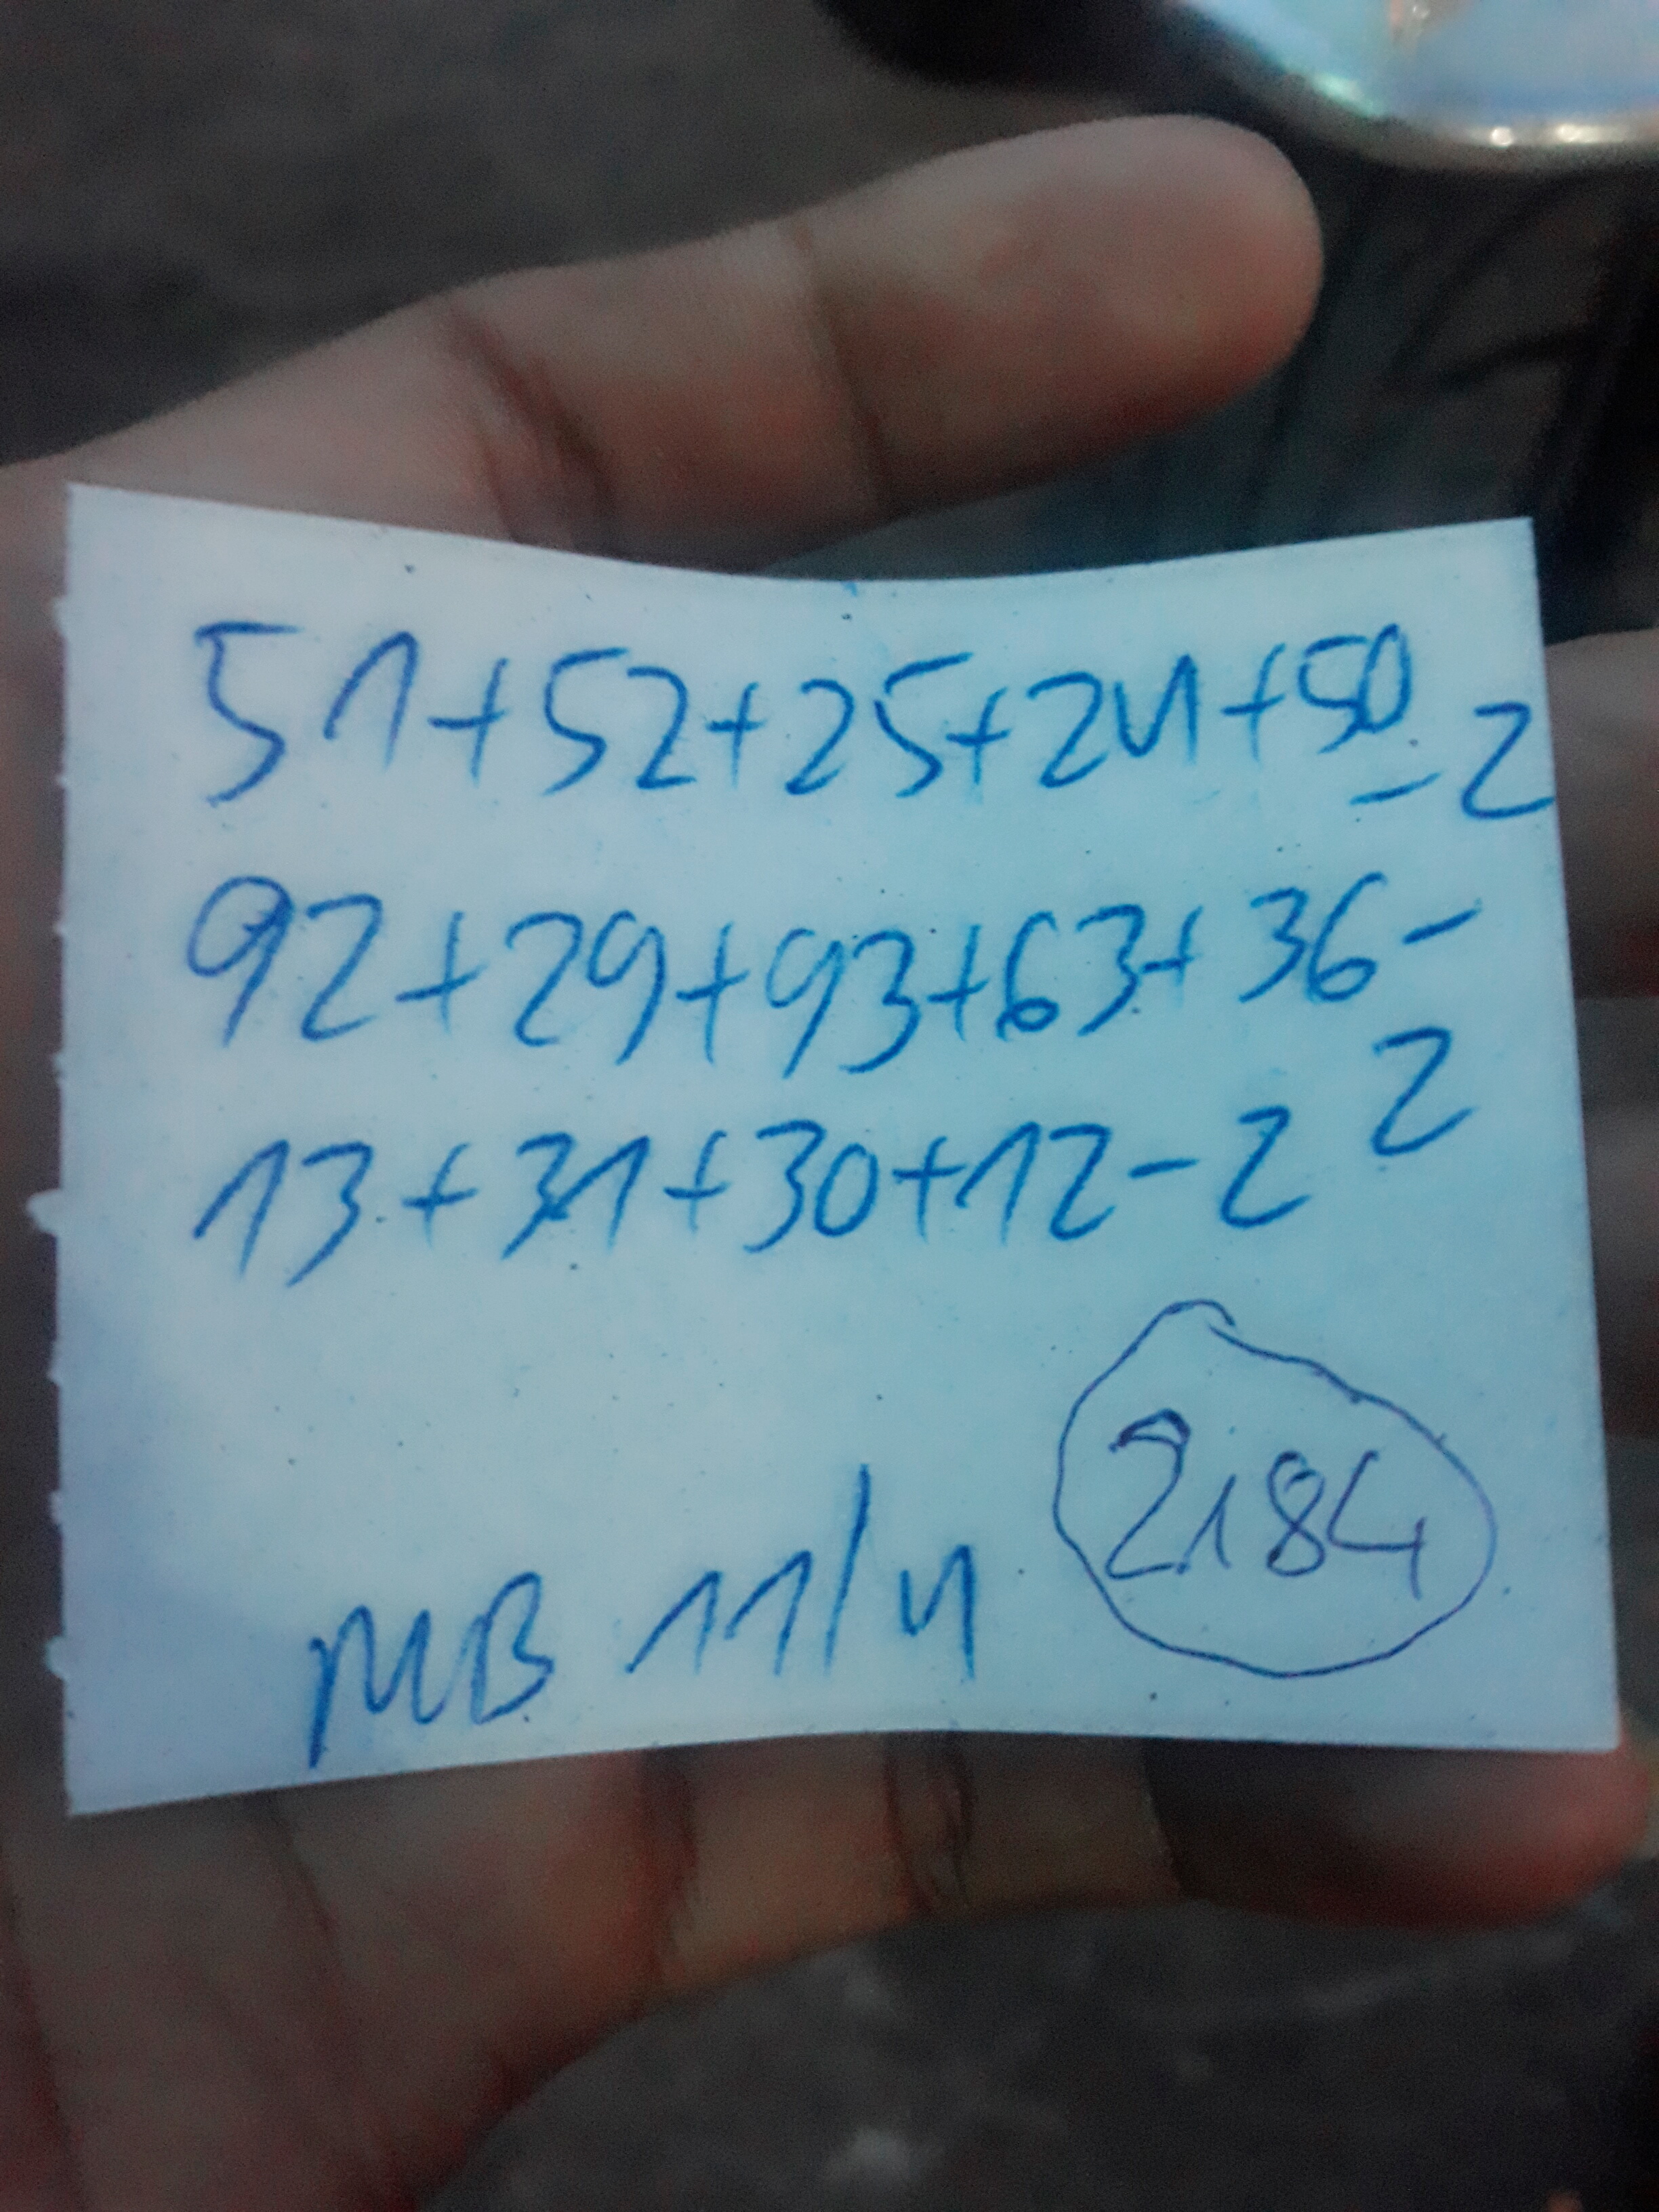 51+52+25+24+50-2
92+29+93+63+36-2
13+31+30+12-2
2184
MB 11/4